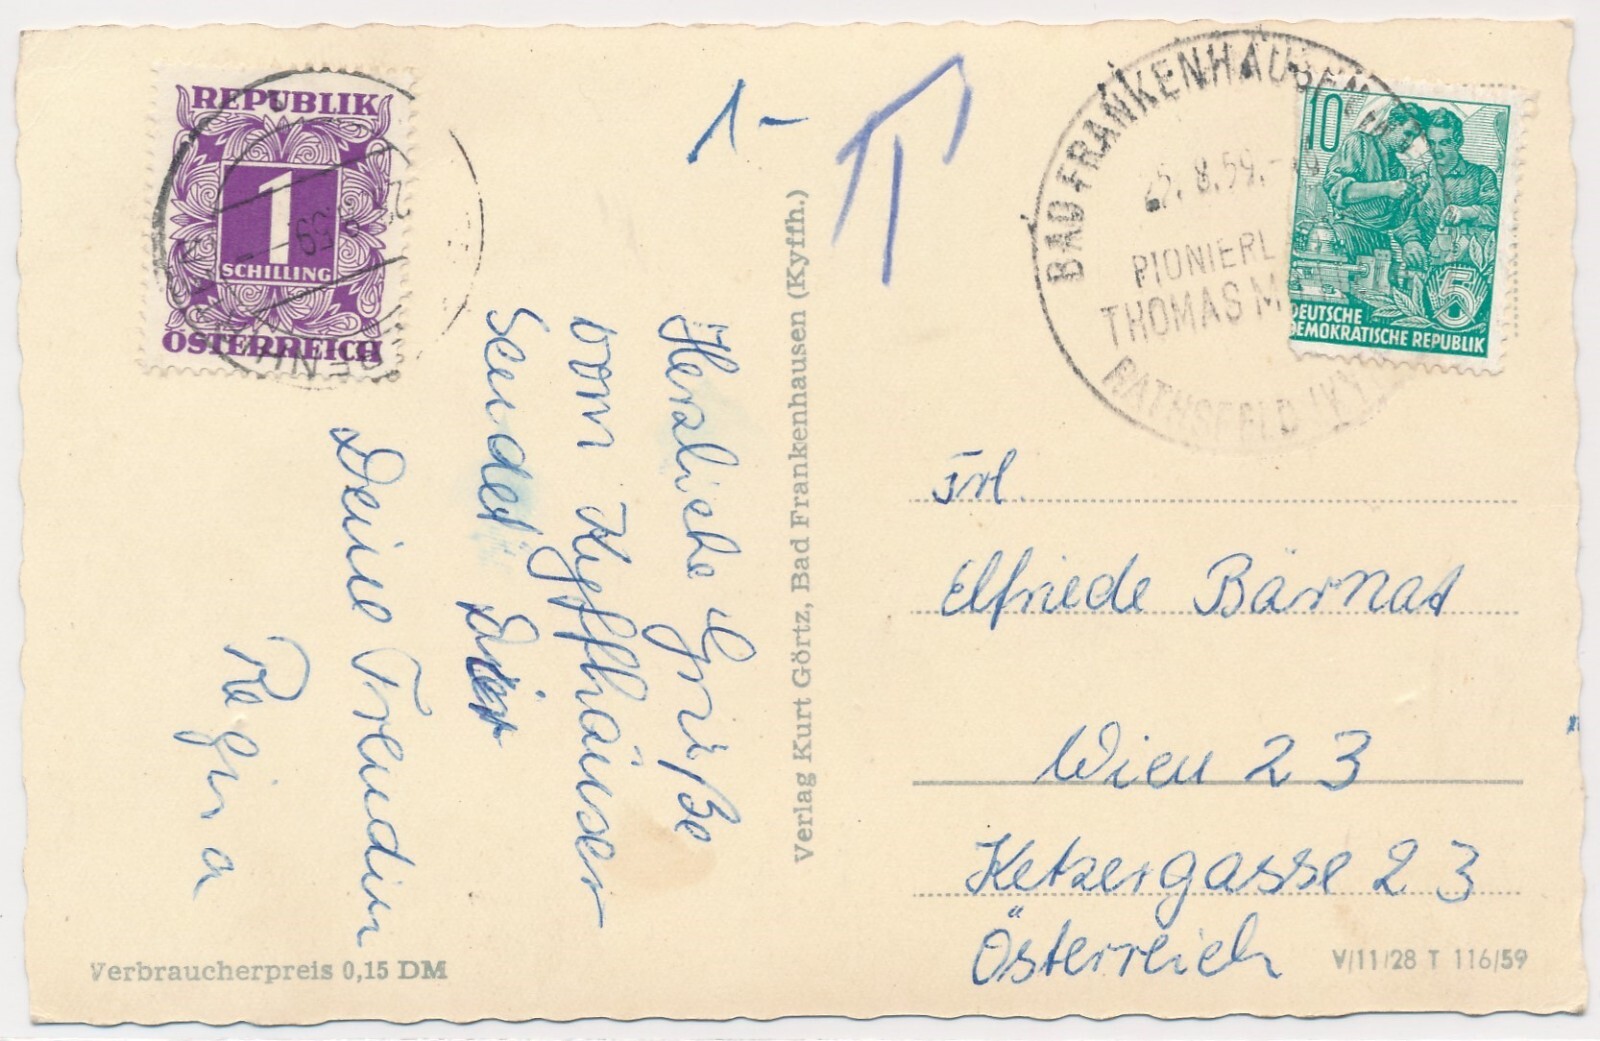 REPUBLIK
1
SCHILLING
ÖSTERREICH
1-
T
BAD FRANKENHAUSEN
25. 8. 59.
PIONIERL
THOMAS M
RATHSFELD
10
5
DEUTSCHE
DEMOKRATISCHE REPUBLIK
Herzliche Grüße
vom Kyffhäuser
Sendet Dir
Deine Freundin
Regina
Verlag Kurt Görtz, Bad Frankenhausen (Kyffh.)
Frl.
Elfriede Bärnat
Wien 23
Ketzergasse 23
Österreich
Verbraucherpreis 0,15 DM
V/11/28 T 116/59